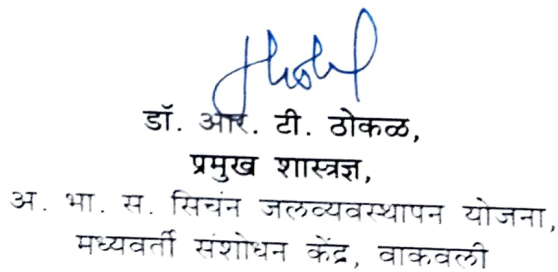 डॉ. आर. टी. ठोकळ,
प्रमुख शास्त्रज्ञ,
अ. भा. स. सिचंन जलव्यवस्थापन योजना,
मध्यवर्ती संशोधन केंद्र, वाकवली